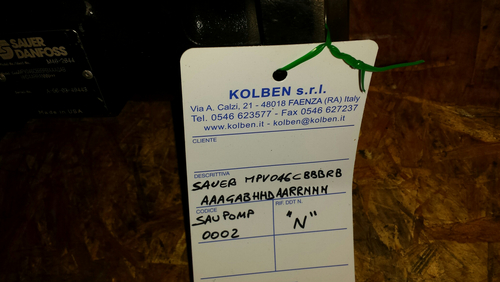 SAUER
DANFOSS
KOLBEN s.r.l.
Via A. Calzi, 21 - 48018 FAENZA (RA) Italy
Tel. 0546 623577 - Fax 0546 627237
www.kolben.it - kolben@kolben.it
CLIENTE
DESCRITTIVA
SAUER MPV046CBBBRB
AAAGABHHDAARRNNN
CODICE
RIF. DDT N.
SAUPOMP
0002
"N"